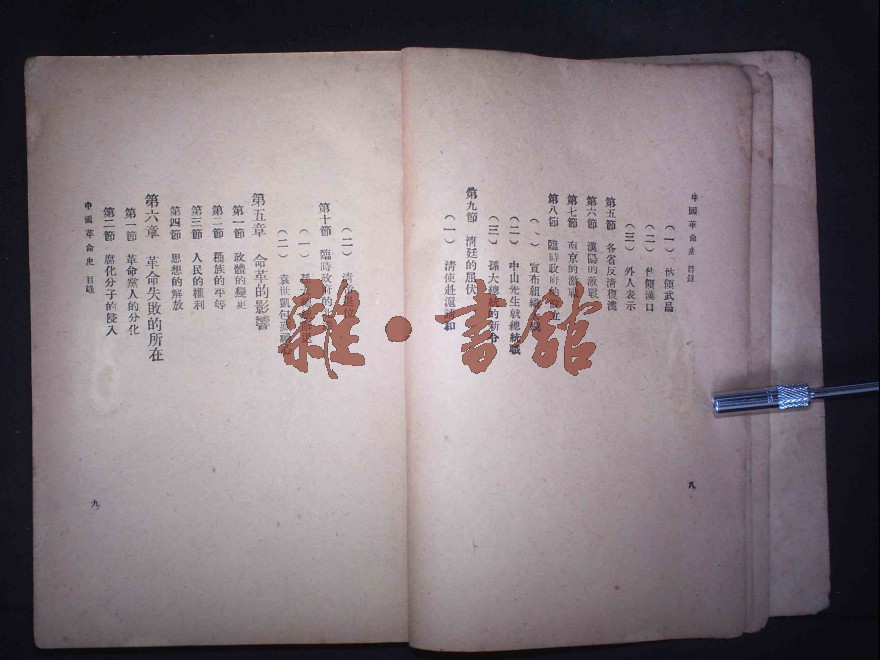 中國革命史 目錄
（一） 佔領武昌
（二） 佔領漢口
（三） 外人表示
第五節 各省反清復漢
第六節 漢陽的激戰
第七節 南京的激戰
第八節 臨時政府的成立
（一） 宣布組織
（二） 中山先生就總統職
（三） 孫大總統的新令
第九節 清廷的屈伏
（一） 清使赴滬議和
八
（二） 清
第十節 臨時政府的
（一） 孫
（二） 袁世凱包
第五章 命革的影響
第一節 政體的變更
第二節 種族的平等
第三節 人民的權利
第四節 思想的解放
第六章 革命失敗的所在
第一節 革命黨人的分化
第二節 腐化分子的侵入
中國革命史 目錄
九
雜·書館